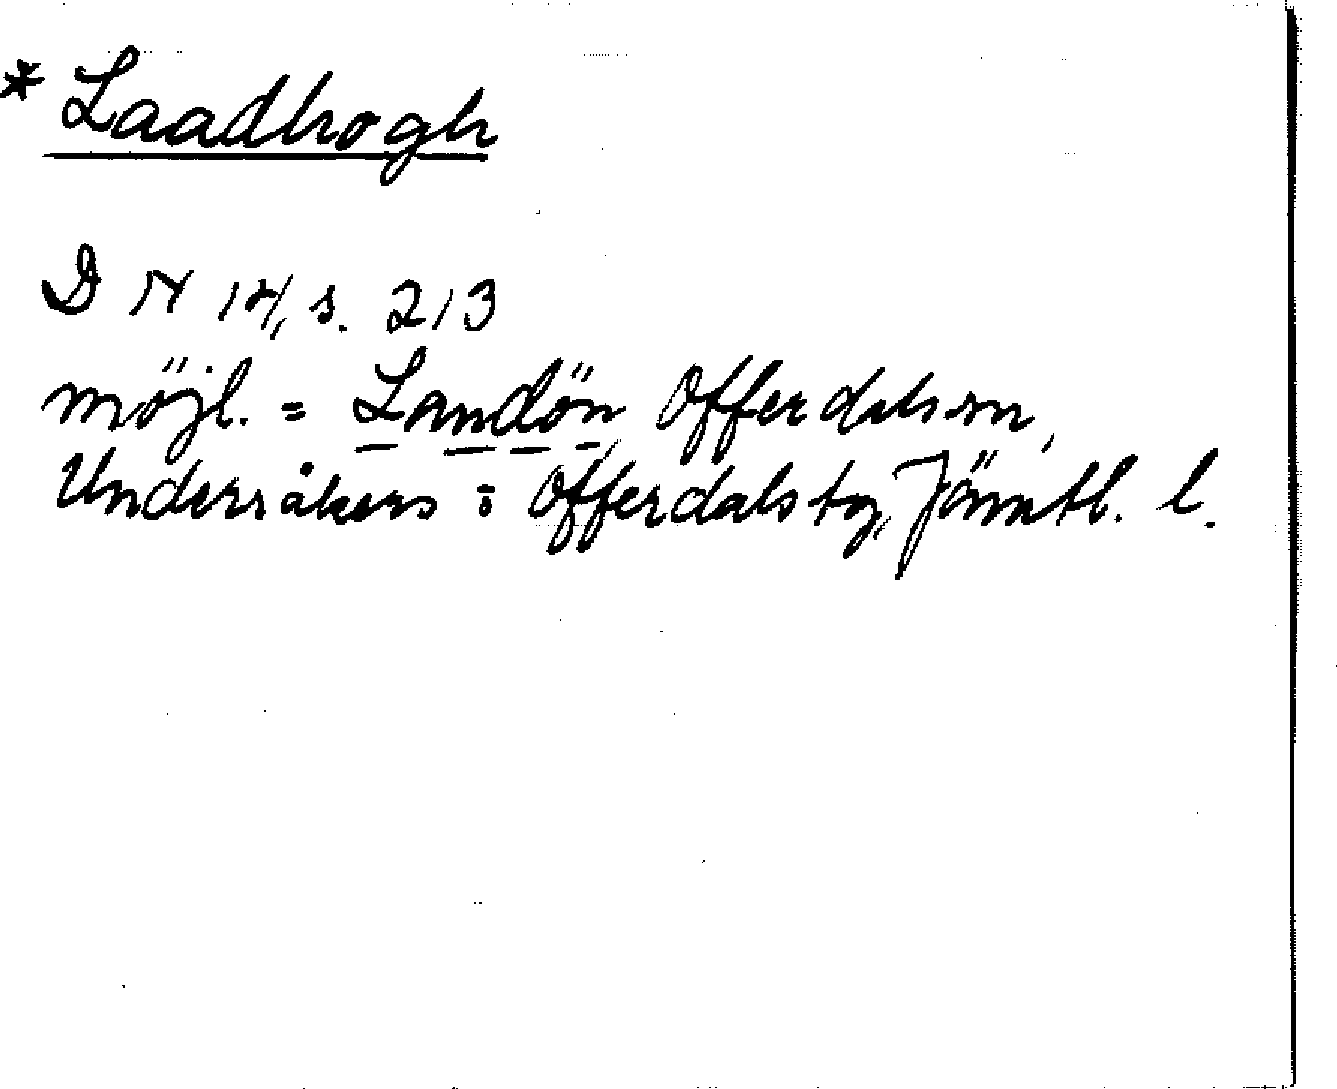 * Laadhogh
D N 14, s. 213
möjl. = Landön, Offerdals sn,
Undersåkers o Offerdals tg, Jämtl. l.